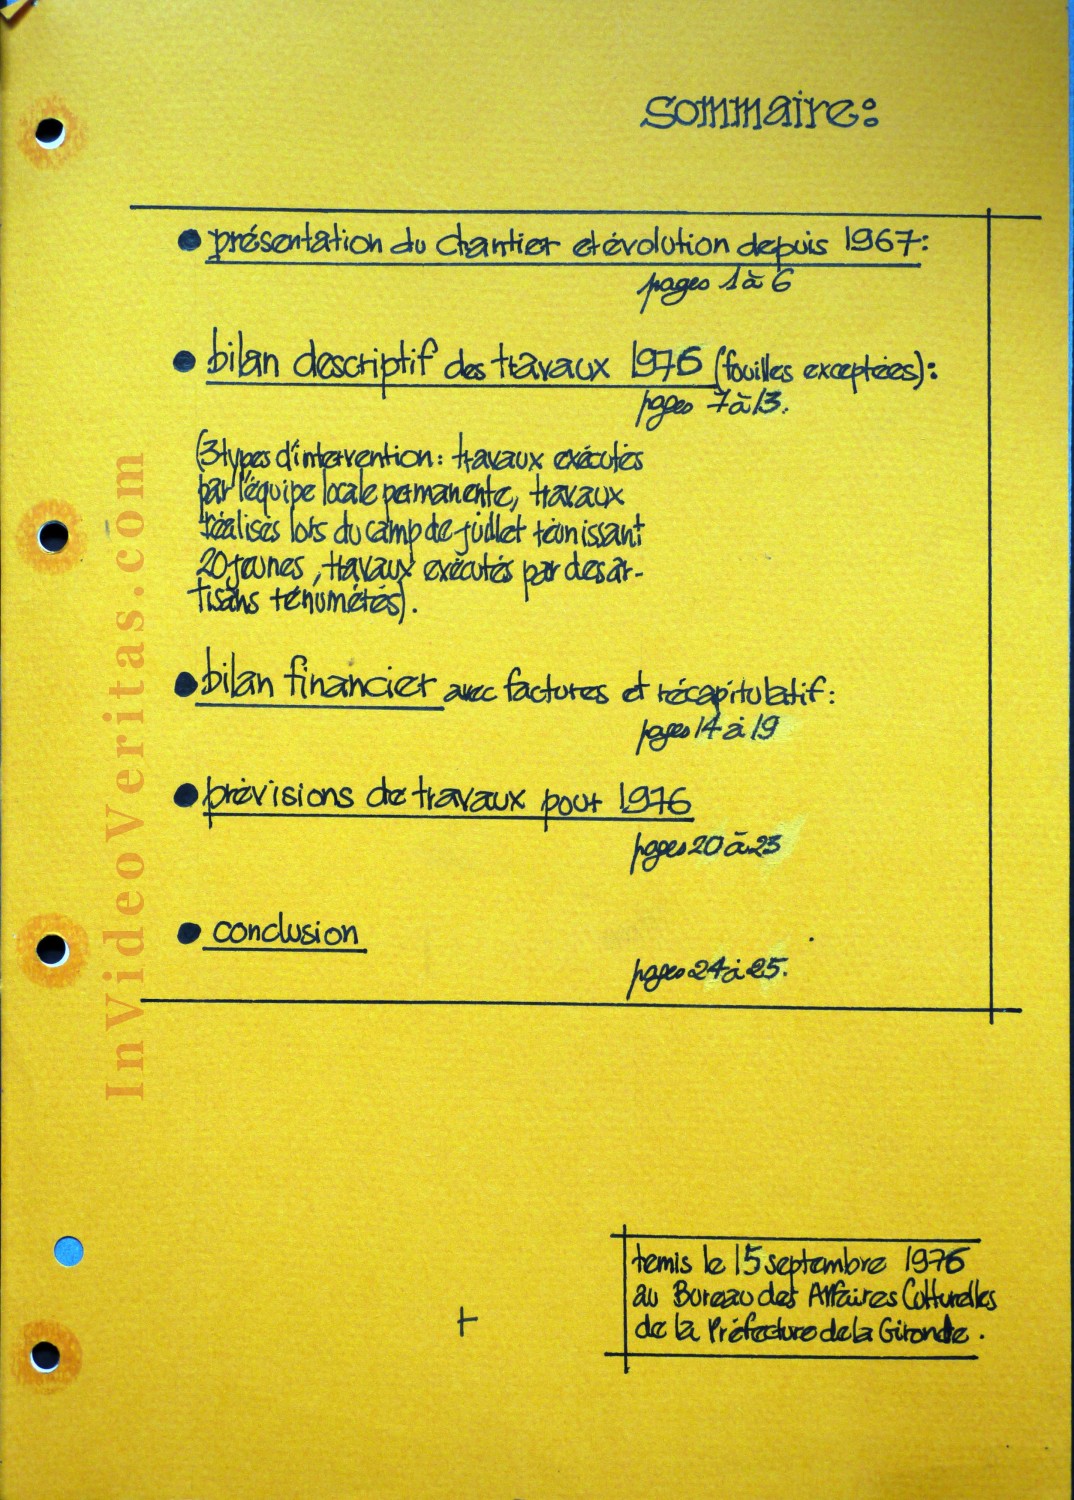 sommaire:
● présentation du chantier et évolution depuis 1967:
pages 1 à 6
● bilan descriptif des travaux 1976 (fouilles exceptées):
pages 7 à 13.
(3 types d'intervention: travaux exécutés
par l'équipe locale permanente, travaux
réalisés lors du camp de juillet réunissant
20 jeunes, travaux exécutés par des ar-
tisans rénumérés).
● bilan financier avec factures et récapitulatif:
pages 14 à 19
● prévisions de travaux pour 1976
pages 20 à 23
● conclusion
pages 24 à 25.
remis le 15 septembre 1976
au Bureau des Affaires Culturelles
de la Préfecture de la Gironde.
InVideoVeritas.com